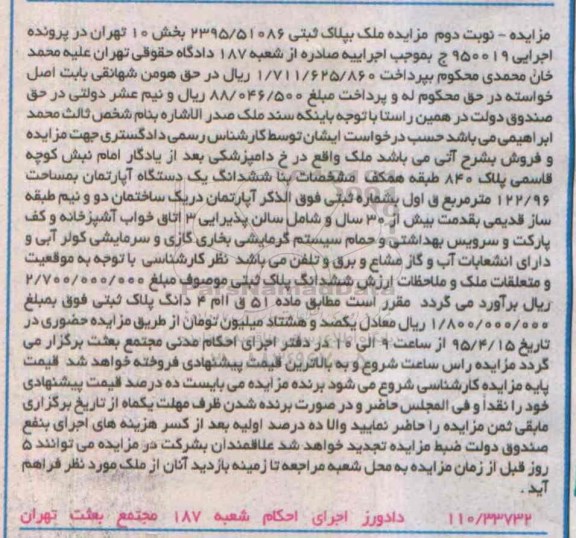 مزایده - نوبت دوم مزایده ملک بپلاک ثبتی ۲۳۹۵/۵۱۰۸۶ بخش ۱۰ تهران در پرونده
اجرایی ۹۵۰۰۱۹ ج بموجب اجراییه صادره از شعبه ۱۸۷ دادگاه حقوقی تهران علیه محمد
خان محمدی محکوم بپرداخت ۱/۷۱۱/۶۲۵/۸۶۰ ریال در حق هومن شهانقی بابت اصل
خواسته در حق محکوم له و پرداخت مبلغ ۸۸/۰۴۶/۵۰۰ ریال و نیم عشر دولتی در حق
صندوق دولت در همین راستا با توجه باینکه سند ملک صدر الاشاره بنام شخص ثالث محمد
ابراهیمی می باشد حسب درخواست ایشان توسط کارشناس رسمی دادگستری جهت مزایده
و فروش بشرح آتی می باشد ملک واقع در خ دامپزشکی بعد از یادگار امام نبش کوچه
قاسمی پلاک ۸۴۰ طبقه همکف مشخصات بنا ششدانگ یک دستگاه آپارتمان بمساحت
۱۲۲/۹۶ مترمربع ق اول بشماره ثبتی فوق الذکر آپارتمان در یک ساختمان دو و نیم طبقه
ساز قدیمی بقدمت بیش از ۳۰ سال و شامل سالن پذیرایی ۳ اتاق خواب آشپزخانه و کف
پارکت و سرویس بهداشتی و حمام سیستم گرمایشی بخاری گازی و سرمایشی کولر آبی و
دارای انشعابات آب و گاز مشاع و برق و تلفن می باشد نظر کارشناسی با توجه به موقعیت
و متعلقات ملک و ملاحظات ارزش ششدانگ پلاک ثبتی موصوف مبلغ ۲/۷۰۰/۰۰۰/۰۰۰
ریال برآورد می گردد مقرر است مطابق ماده ۵۱ ق اام ۴ دانگ پلاک ثبتی فوق بمبلغ
۱/۸۰۰/۰۰۰/۰۰۰ ریال معادل یکصد و هشتاد میلیون تومان از طریق مزایده حضوری در
تاریخ ۹۵/۴/۱۵ از ساعت ۹ الی ۱۰ در دفتر اجرای احکام مدنی مجتمع بعثت برگزار می
گردد مزایده راس ساعت شروع و به بالاترین قیمت پیشنهادی فروخته خواهد شد قیمت
پایه مزایده کارشناسی شروع می شود برنده مزایده می بایست ده درصد قیمت پیشنهادی
خود را نقداً و فی المجلس حاضر و در صورت برنده شدن ظرف مهلت یکماه از تاریخ برگزاری
مابقی ثمن مزایده را حاضر نمایید والا ده درصد اولیه بعد از کسر هزینه های اجرای بنفع
صندوق دولت ضبط مزایده تجدید خواهد شد علاقمندان بشرکت در مزایده می توانند ۵
روز قبل از زمان مزایده به محل شعبه مراجعه تا زمینه بازدید آنان از ملک مورد نظر فراهم
آید .
۱۱۰/۳۳۷۳۲ دادورز اجرای احکام شعبه ۱۸۷ مجتمع بعثت تهران